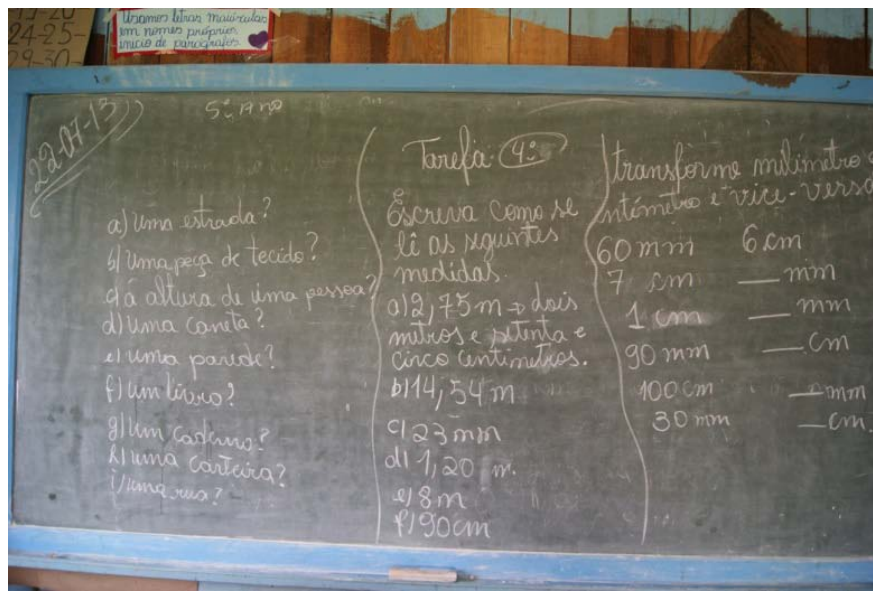 19-20
24-25-
29-30-
Usamos letras maiúsculas
em nomes próprios
início de parágrafos.
22-07-13
5º ano
a) Uma estrada?
b) Uma peça de tecido?
c) a altura de uma pessoa?
d) uma caneta?
e) uma parede?
f) um livro?
g) um caderno?
h) uma carteira?
i) uma rua?
Tarefa: 4º
Escreva como se
lê as seguintes
medidas.
a) 2,75 m → dois
metros e setenta e
cinco centímetros.
b) 14,54 m
c) 23 mm
d) 1,20 m.
e) 8 m
f) 90 cm
transforme milímetro
ntímetro e vice-versa
60 mm 6 cm
7 cm __ mm
1 cm __ mm
90 mm __ cm
100 cm __ mm
30 mm __ cm.